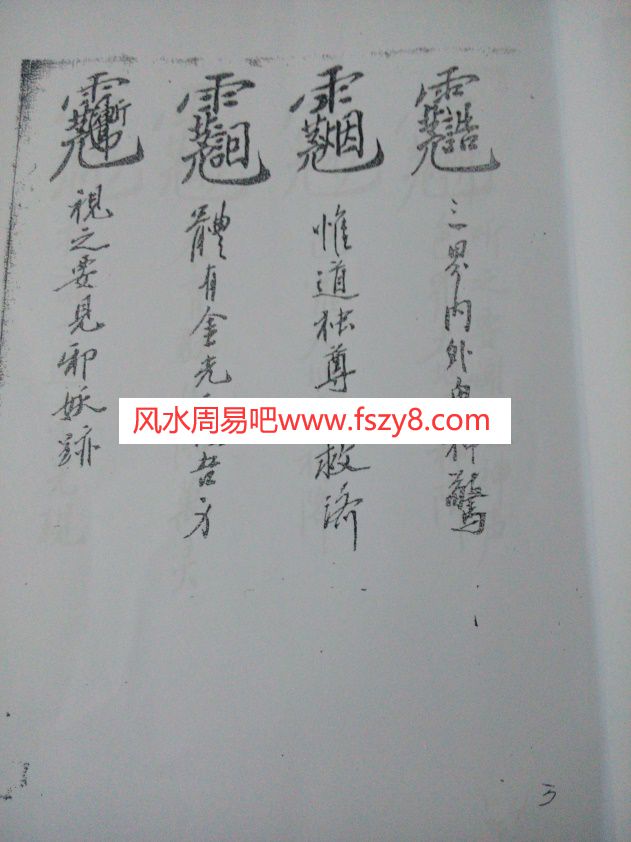 三界内外鬼神驚
惟道独尊救济
體有金光吾身
視之要見邪妖跡
风水周易吧www.fszy8.com
3